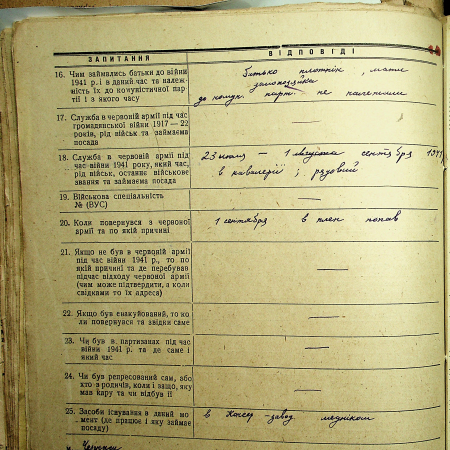 ЗАПИТАННЯ
ВІДПОВІДІ
16. Чим займались батьки до війни
1941 р. і в даний час та належ-
ність їх до комуністичної пар-
тії і з якого часу
батько плотнік, мати
домохозяйка
до комун. парт. не належали
17. Служба в червоній армії під час
громадянської війни 1917—22
років, рід військ та займаєма
посада
—
18. Служба в червоній армії під
час війни 1941 року, який час,
рід військ, останнє військове
звання та займаєма посада
23 июля — 1 сентября 1941
в кавалерії; рядовий
19. Військова спеціальність
№ (ВУС)
20. Коли повернувся з червоної
армії та по якій причині
1 сентября в плен попав
21. Якщо не був в червоній армії
під час війни 1941 р., то по
якій причині та де перебував
підчас відходу червоної армії
(чим може підтвердити, а коли
свідками то їх адреса)
—
22. Якщо був енакуйований, то ко-
ли повернувся та звідки саме
—
23. Чи був в партизанах під час
війни 1941 р. та де саме і
який час
—
24. Чи був репресований сам, або
хто з родичів, коли і защо, яку
мав кару та чи відбув її
—
25. Засоби існування в даний мо-
мент (де працює і яку займає
посаду)
в Консер. завод медніком